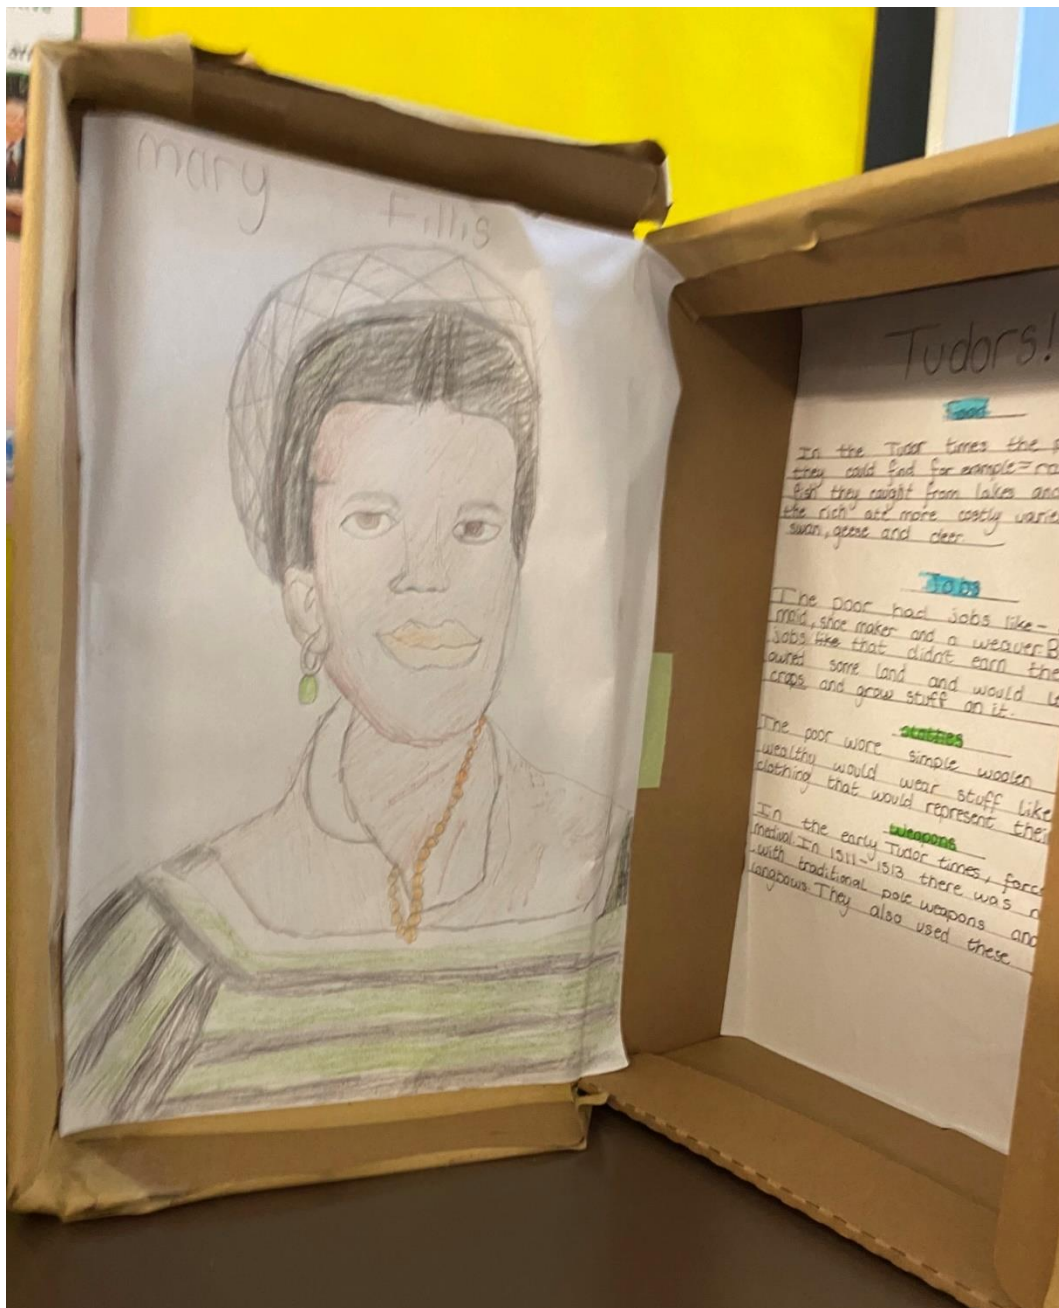 Mary Fillis
Tudors!
Food
In the Tudor times the
they could find for example=
fish they caught from lakes and
the rich ate more costly
swan, geese and deer.
Jobs
The poor had jobs like-
maid, shoe maker and a weaver.
jobs like that didn't earn
owned some land and would
crops and grow stuff on it.
clothes
The poor wore simple woolen
wealthy would wear stuff like
clothing that would represent
weapons
In the early Tudor times,
medival. In 1511-1513 there was
with traditional pole weapons and
longbows. They also used these